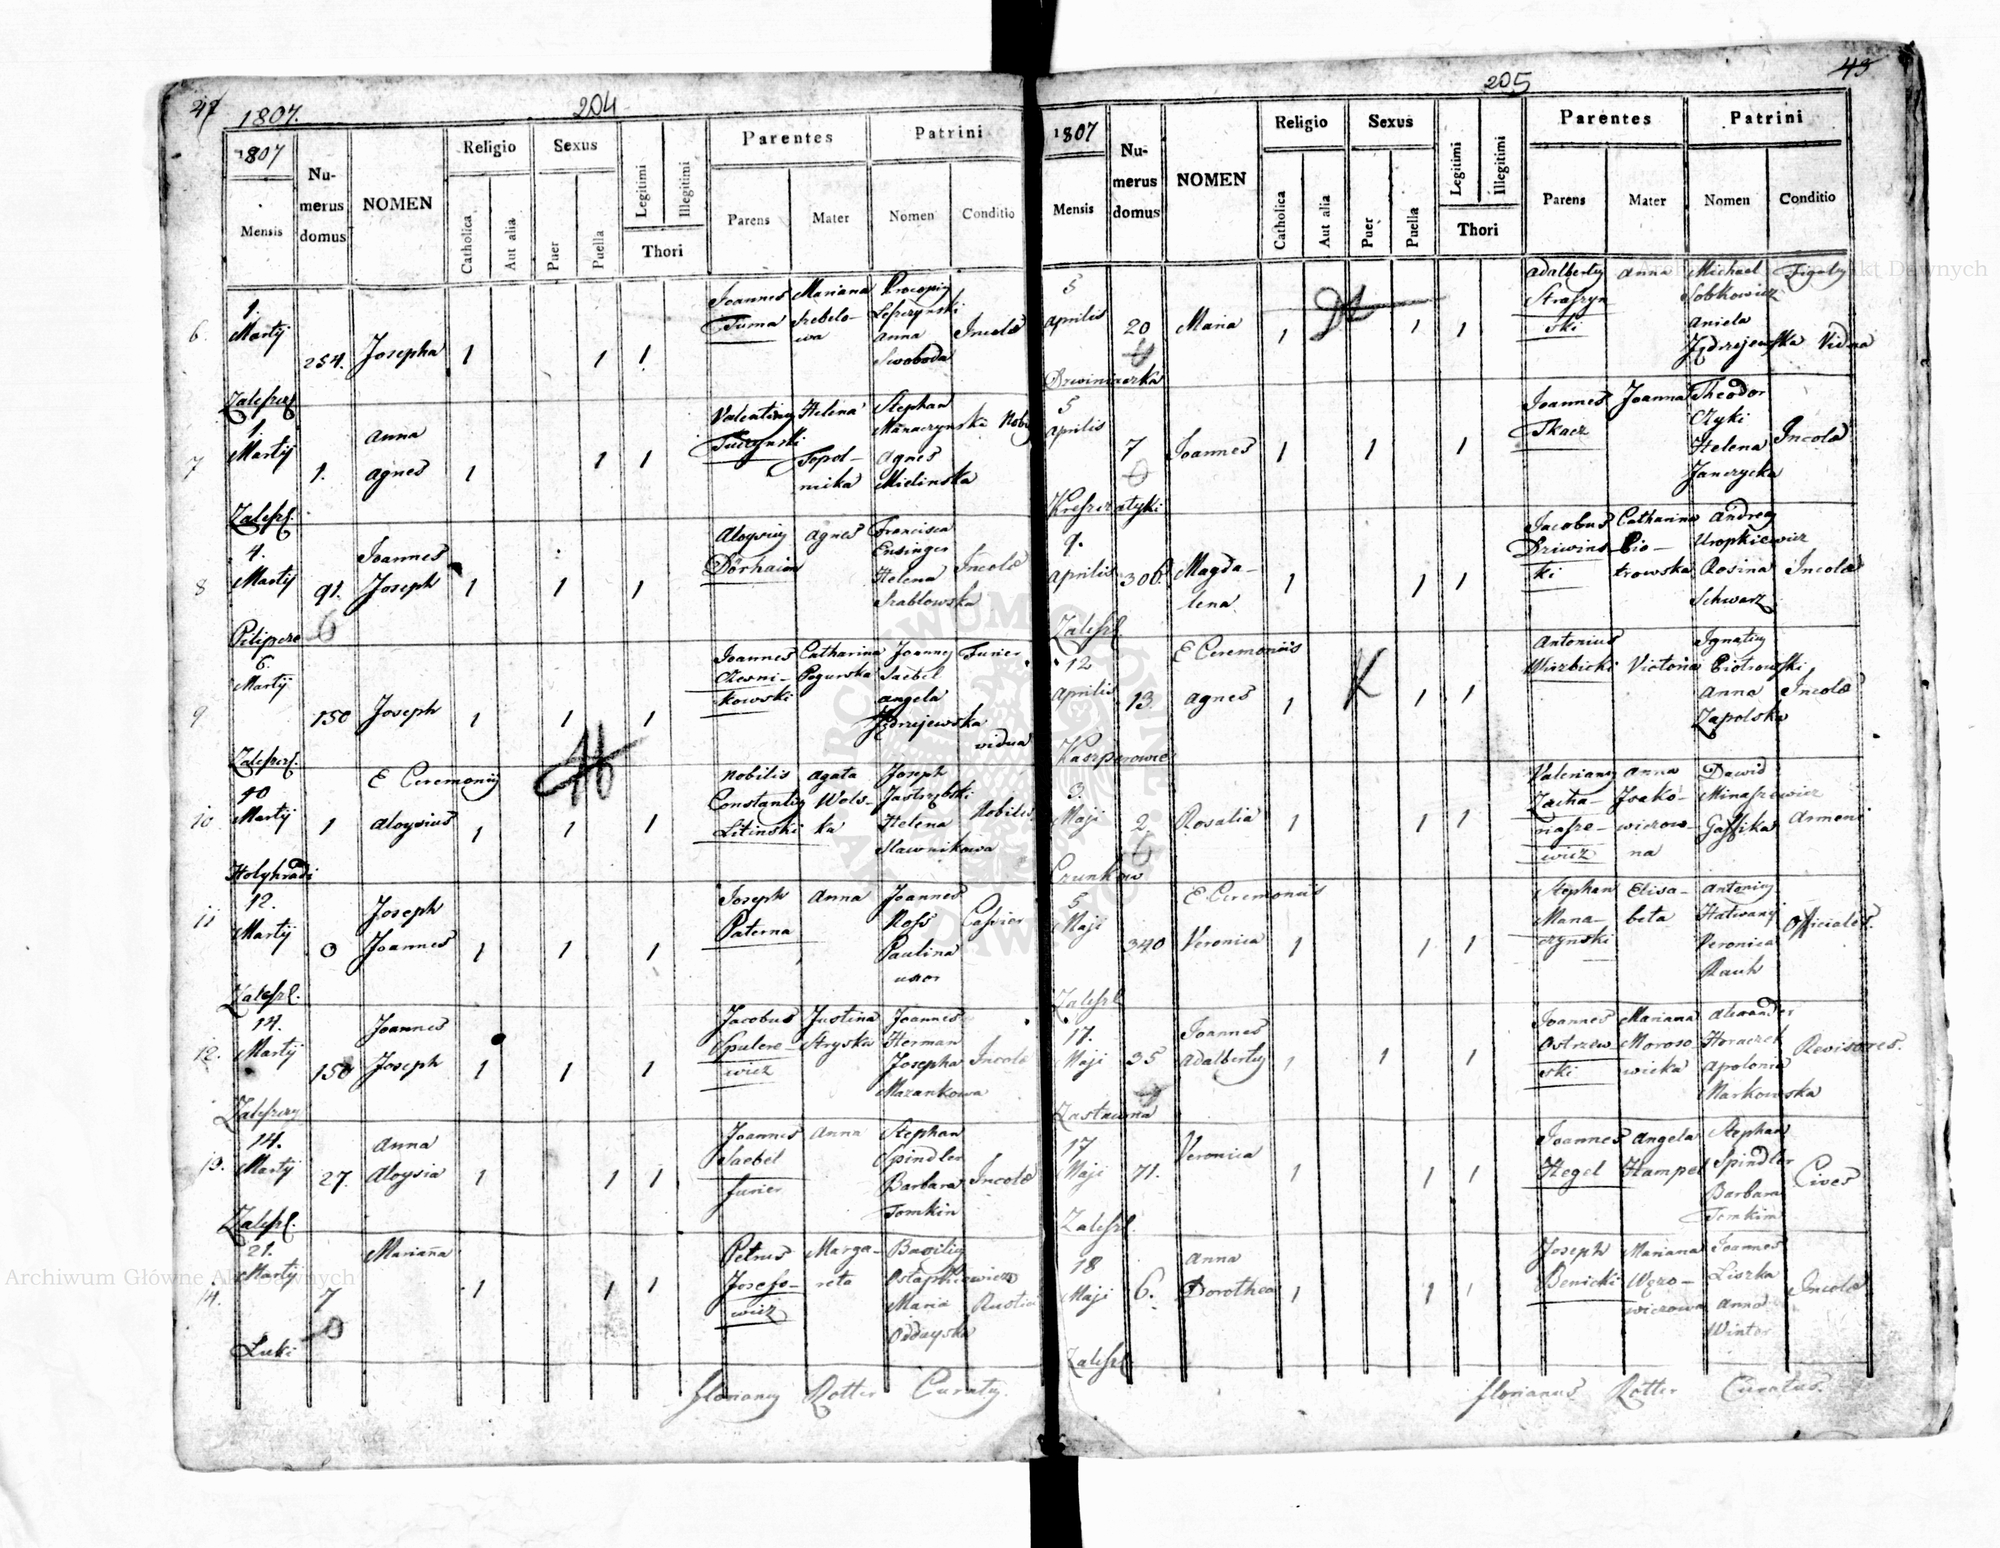 47 1807. 204
1807 Numerus domus NOMEN Religio Sexus Legitimi Illegitimi Parentes Patrini
Mensis Catholica Aut alia Puer Puella Thori Parens Mater Nomen Conditio
6. 1. Martij 254. Josepha 1 1 1
Joannes Mariana Procopiy
Tuma
Anna Incolae
Swoboda
Zaleszcz.
7 1. Martij 1. Anna Agnes 1 1 1
Valentiny Helena Stephan
Agnes
Mielinska
Zaleszl.
8 4. Martij 91. Joannes Joseph 1 1 1
Aloysiy Agnes Francisca
Ensinger
Helena Incolae
Szablowska
9 6. Martij 150 Joseph 1 1 1
Joannes Catharina Joannes Furier
Czerni- Pogurska Saebel
kowski Angela
Jędrzejewska
vidua
Zaleszcz.
E Ceremoniis
10 10 Martij 1 Aloysius 1 1 1
Nobilis Agata Joseph
Constantiy Wols- Jastrzębski
Litinski ka Helena Nobiles
Slawnikowa
Holyhradi
11 12. Martij 0 Joseph Joannes 1 1 1
Joseph Anna Joannes
Paterna Ross
Paulina
uxor
Zaleszl.
12. 14. Martij 150 Joannes Joseph 1 1 1
Jacobus Justina Joannes
Stryska Herman
wicz Josepha Incolae
Mazankowa
Zaleszczy
13. 14. Martij 27. Anna Aloysia 1 1 1
Joannes Anna Stephan
Saebel Spindler
furier Barbara Incolae
Tomkin
Zaleszl.
14. 21. Martij 7 Marianna 1 1 1
Petrus Marga- Basiliy
Josefo- reta Ostapkiewicz
wicz Maria
Luki
Florianus Rotter Curatus
205 49
1807 Numerus domus NOMEN Religio Sexus Legitimi Illegitimi Parentes Patrini
Mensis Catholica Aut alia Puer Puella Thori Parens Mater Nomen Conditio
5 Aprilis 20 Maria 1 1 1
Adalbertus Anna Michael
Straszyn Sobkowicz
ski Aniela
Jędrzejewska Vidua
5 Aprilis 7 Joannes 1 1 1
Joannes Joanna Theodor
Tkacz Czyki
Helena Incolae
Janczycka
9. Aprilis 306. Magda-
lena 1 1 1
Jacobus Catharina Andreas
Dziwins- Pio- Uropkiewicz
ki trowska Rosina Incolae
Schwarz
Zaleszl.
E Ceremoniis
12 Aprilis 13. Agnes 1 1 1
Antonius Ignatius
Wirzbicki Victoria Piotrowski
Anna Incolae
Zapolska
Kasperowce
3. Maji 2. Rosalia 1 1 1
Valerianus Anna Dawid
Zacha- Isako- Minaszewicz
riasze- wiczow- Armeni
wicz na
E Ceremoniis
5 Maji 340 Veronica 1 1 1
Stephan Elisa- Antonius
Mana- beta Officiales.
czynski Veronica
Rauh
Zaleszl.
17. Maji 35 Joannes Adalbertus 1 1 1
Joannes Mariana Alexander
Ostrzew Moroso Horaczek Revisores.
ski wicka Apolonia
Markowska
Zastawna
17 Maji 71. Veronica 1 1 1
Joannes Angela Stephan
Hegel Hampel Spindler Cives
Barbara
Tomkin
Zaleszl.
18 Maji 6. Anna Dorothea 1 1 1
Joseph Mariana Joannes
Benicki Węzo- Liszka Incolae
wiczowa Anna
Winter
Zaleszl.
Florianus Rotter Curatus.
ARCHIWUM GŁÓWNE AKT DAWNYCH
Archiwum Główne Akt Dawnych